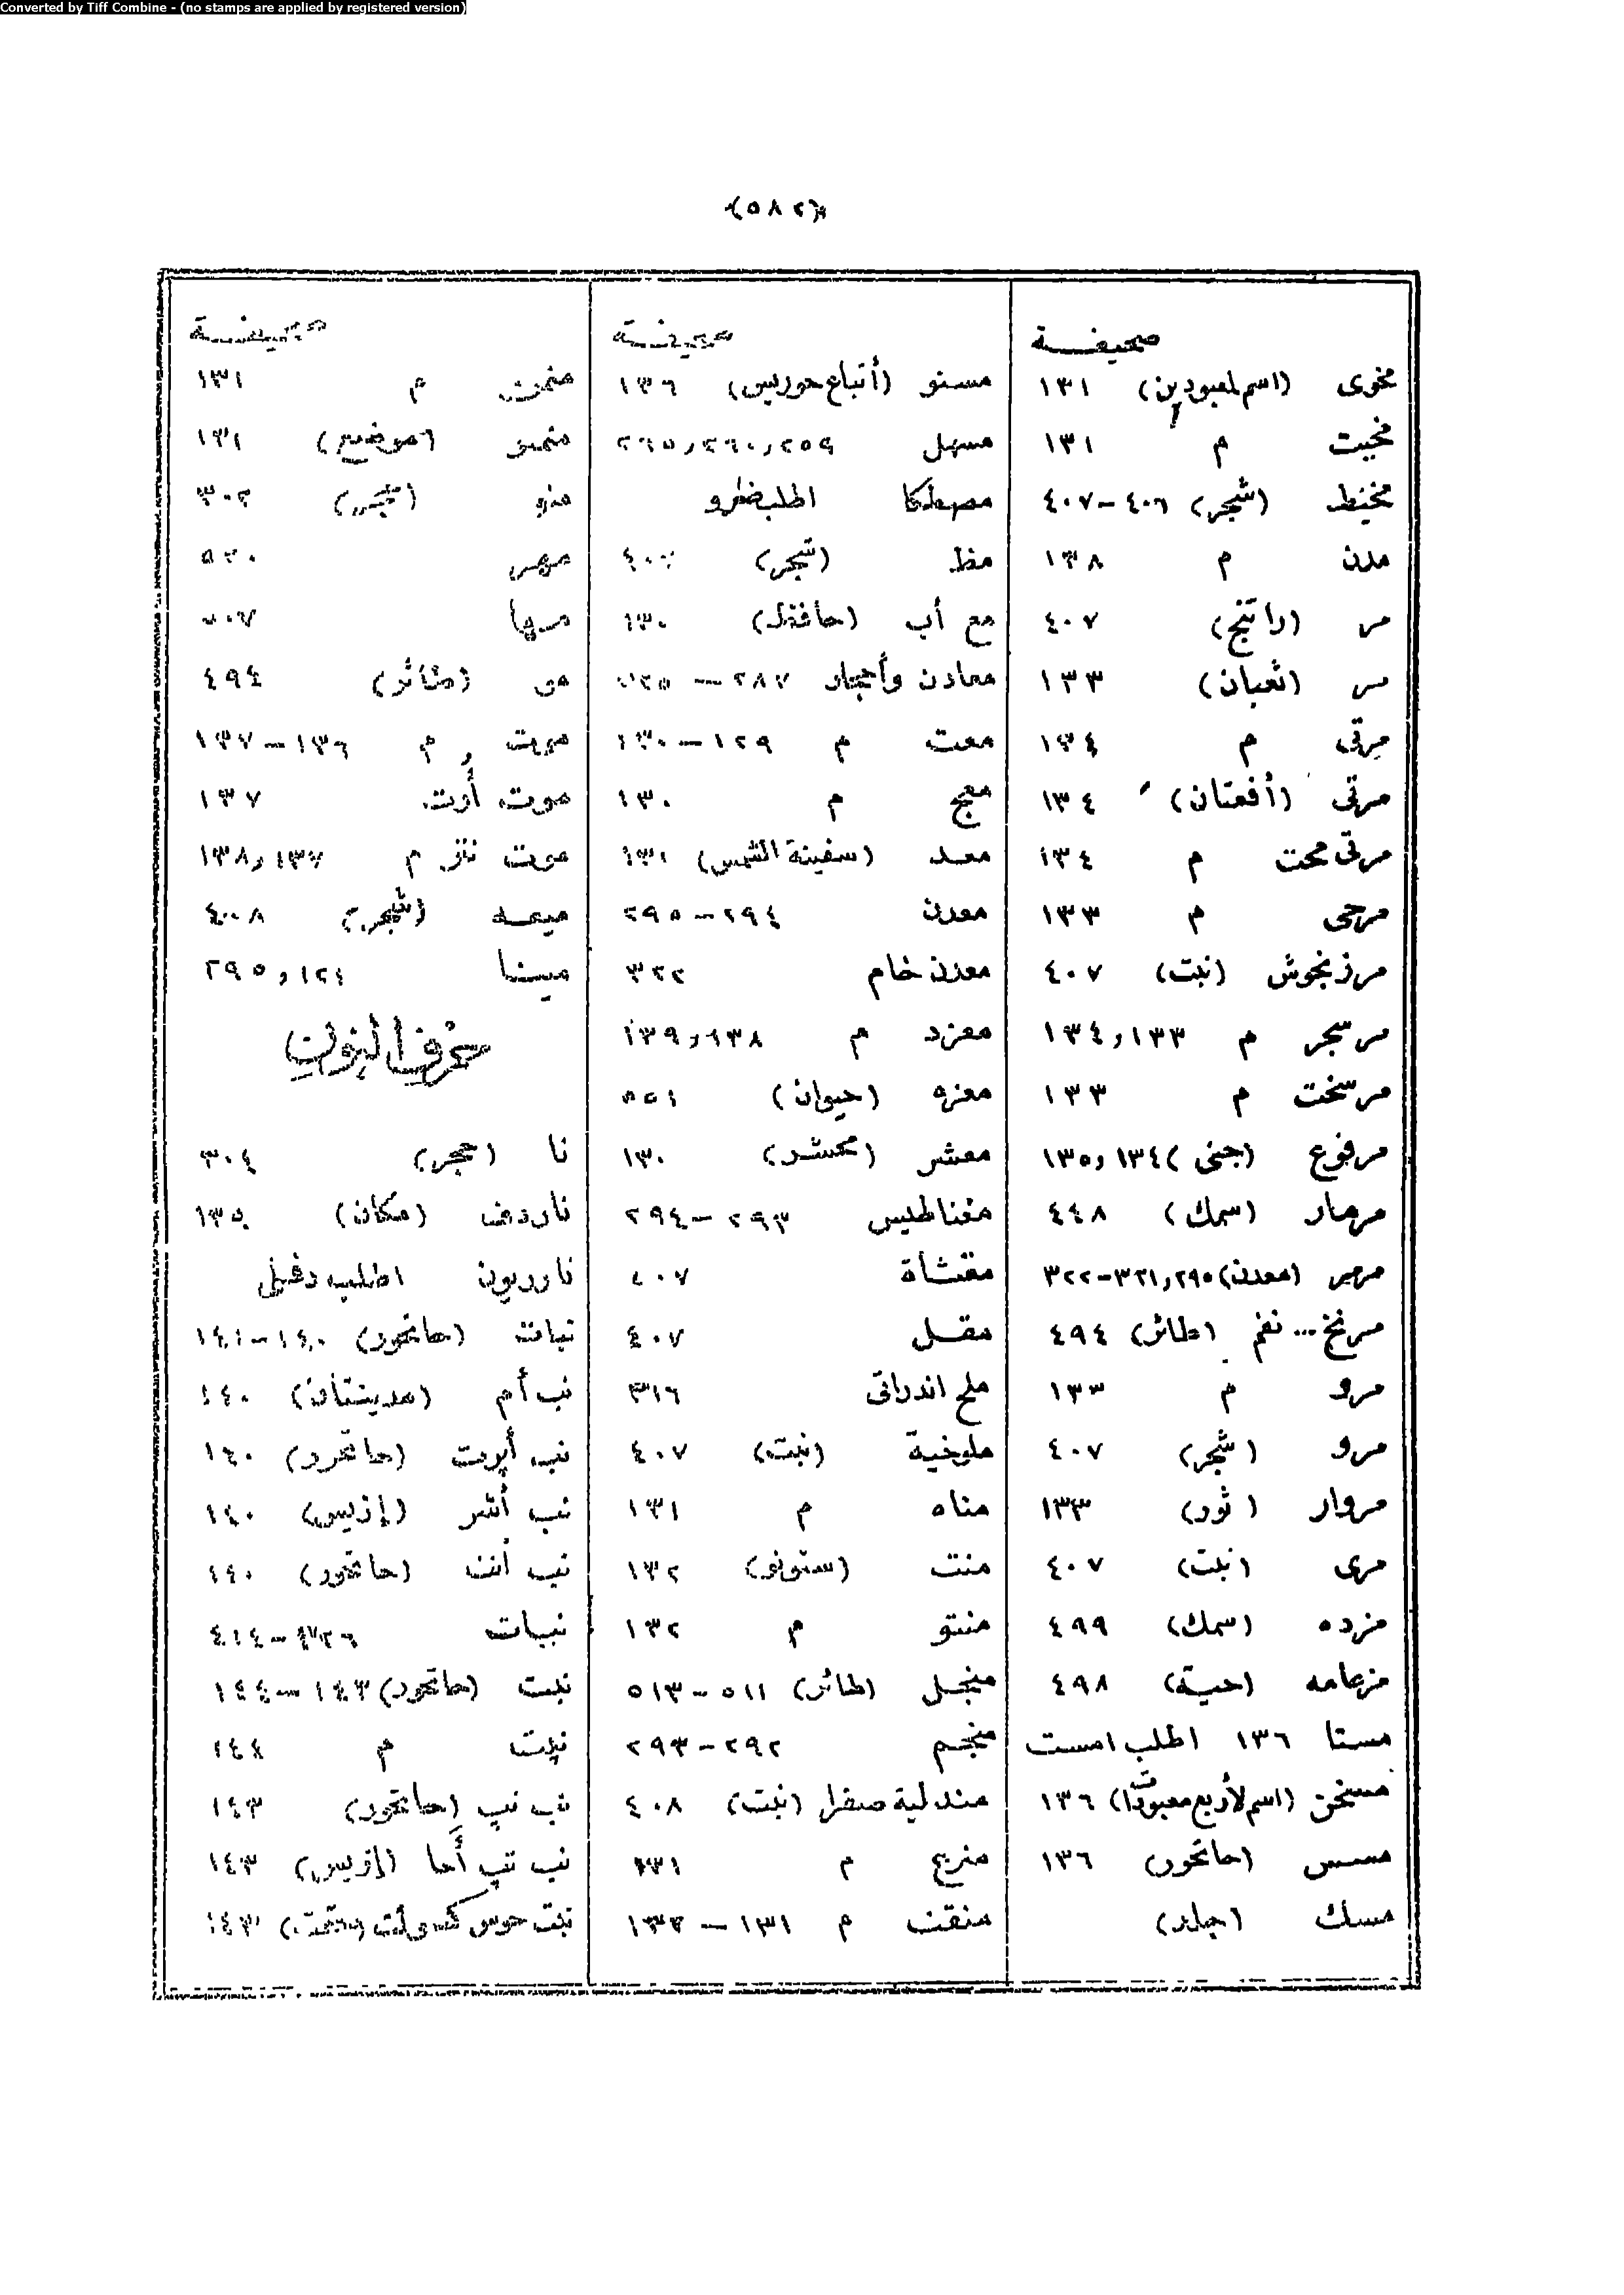 Converted by Tiff Combine - (no stamps are applied by registered version)
(٥٨٢)
صحيفة
مخوى (اسم لمعبودين) ١٣١
مخيت م ١٣١
مخيط (شجر) ٤٠٦-٤٠٧
مدن م ١٣٨
مر (راتنج) ٤٠٧
مر (ثعبان) ١٣٣
مرتى م ١٣٤
مرتى (أفعتان) ١٣٤
مرتى محت م ١٣٤
مرحى م ١٣٣
مرزنجوش (نبت) ٤٠٧
مرسجر م ١٣٣,١٣٤
مرسخت م ١٣٣
مرفوع (جنى) ١٣٤,١٣٥
مرمار (سمك) ٤٤٨
مرمر (معدن) ٢٩٠,٣٢١-٣٢٢
مرنخ... نفم (طائر) ٤٩٤
مرو م ١٣٣
مرو (شجر) ٤٠٧
مروار (ثور) ١٣٣
مرى (نبت) ٤٠٧
مزده (سمك) ٤٩٩
مزعامه (حية) ٤٩٨
مستا ١٣٦ اطلب امست
مسخن (اسم لأربع معبودات) ١٣٦
مسس (حاتحور) ١٣٦
مسك (جلد)
صحيفة
مستو (أتباع حوريس) ١٣٦
مسهل ٢٥٩,٢٦٠,٢٦٥
مصطكا اطلب ضرو
مظ (شجر) ٤٠٧
مع أب (حافظ) ١٣٠
معادن وأحجار ٢٨٧-
معت م ١٢٩-١٣٠
معج م ١٣٠
معد (سفينة الشمس) ١٣١
معدن ٢٩٤-٢٩٥
معدن خام ٣٢٢
معزد م ١٣٨,١٣٩
معزه (حيوان) ٥٥١
معشر (محشر) ١٣٠
مغناطيس ٢٩٣-٢٩٤
مقثأة ٤٠٧
مقل ٤٠٧
ملح اندرانى ٣١٦
ملوخية (نبت) ٤٠٧
مناه م ١٣١
منت (سنونو) ١٣٢
منتو م ١٣٢
منجل (طائر) ٥١١-٥١٣
منجم ٢٩٢-٢٩٣
مندلية صفرا (نبت) ٤٠٨
منريع م ١٣١
منقت م ١٣١-١٣٢
صحيفة
منمت م ١٣١
منمو (موضع) ١٣١
منو (حجر) ٣٠٢
مهر ٥٢٠
مها ٥٠٧
مو (طائر) ٤٩٤
موت م ١٣٦-١٣٧
موت أرت ١٣٧
موت نتر م ١٣٧,١٣٨
ميعه (شجر) ٤٠٨
مينا ١٢١,٢٩٥
حرف النون
نا (حجر) ٣٠٤
ناردف (مكان) ١٣٥
نارديون اطلب دفلى
نبات (حاتحور) ١٤٠-١٤١
نب أم (مدينتان) ١٤٠
نب أپوت (حاتحور) ١٤٠
نب أشر (إزيس) ١٤٠
نب أنت (حاتحور) ١٤٠
نبات ٣٢٦-٤١٤
نبت (حاتحور) ١٤٣-١٤٤
نپت م ١٤٤
نب نپ (حاتحور) ١٤٣
نب تپ أحا (إزيس) ١٤٣
نبت حوس ١٤٣